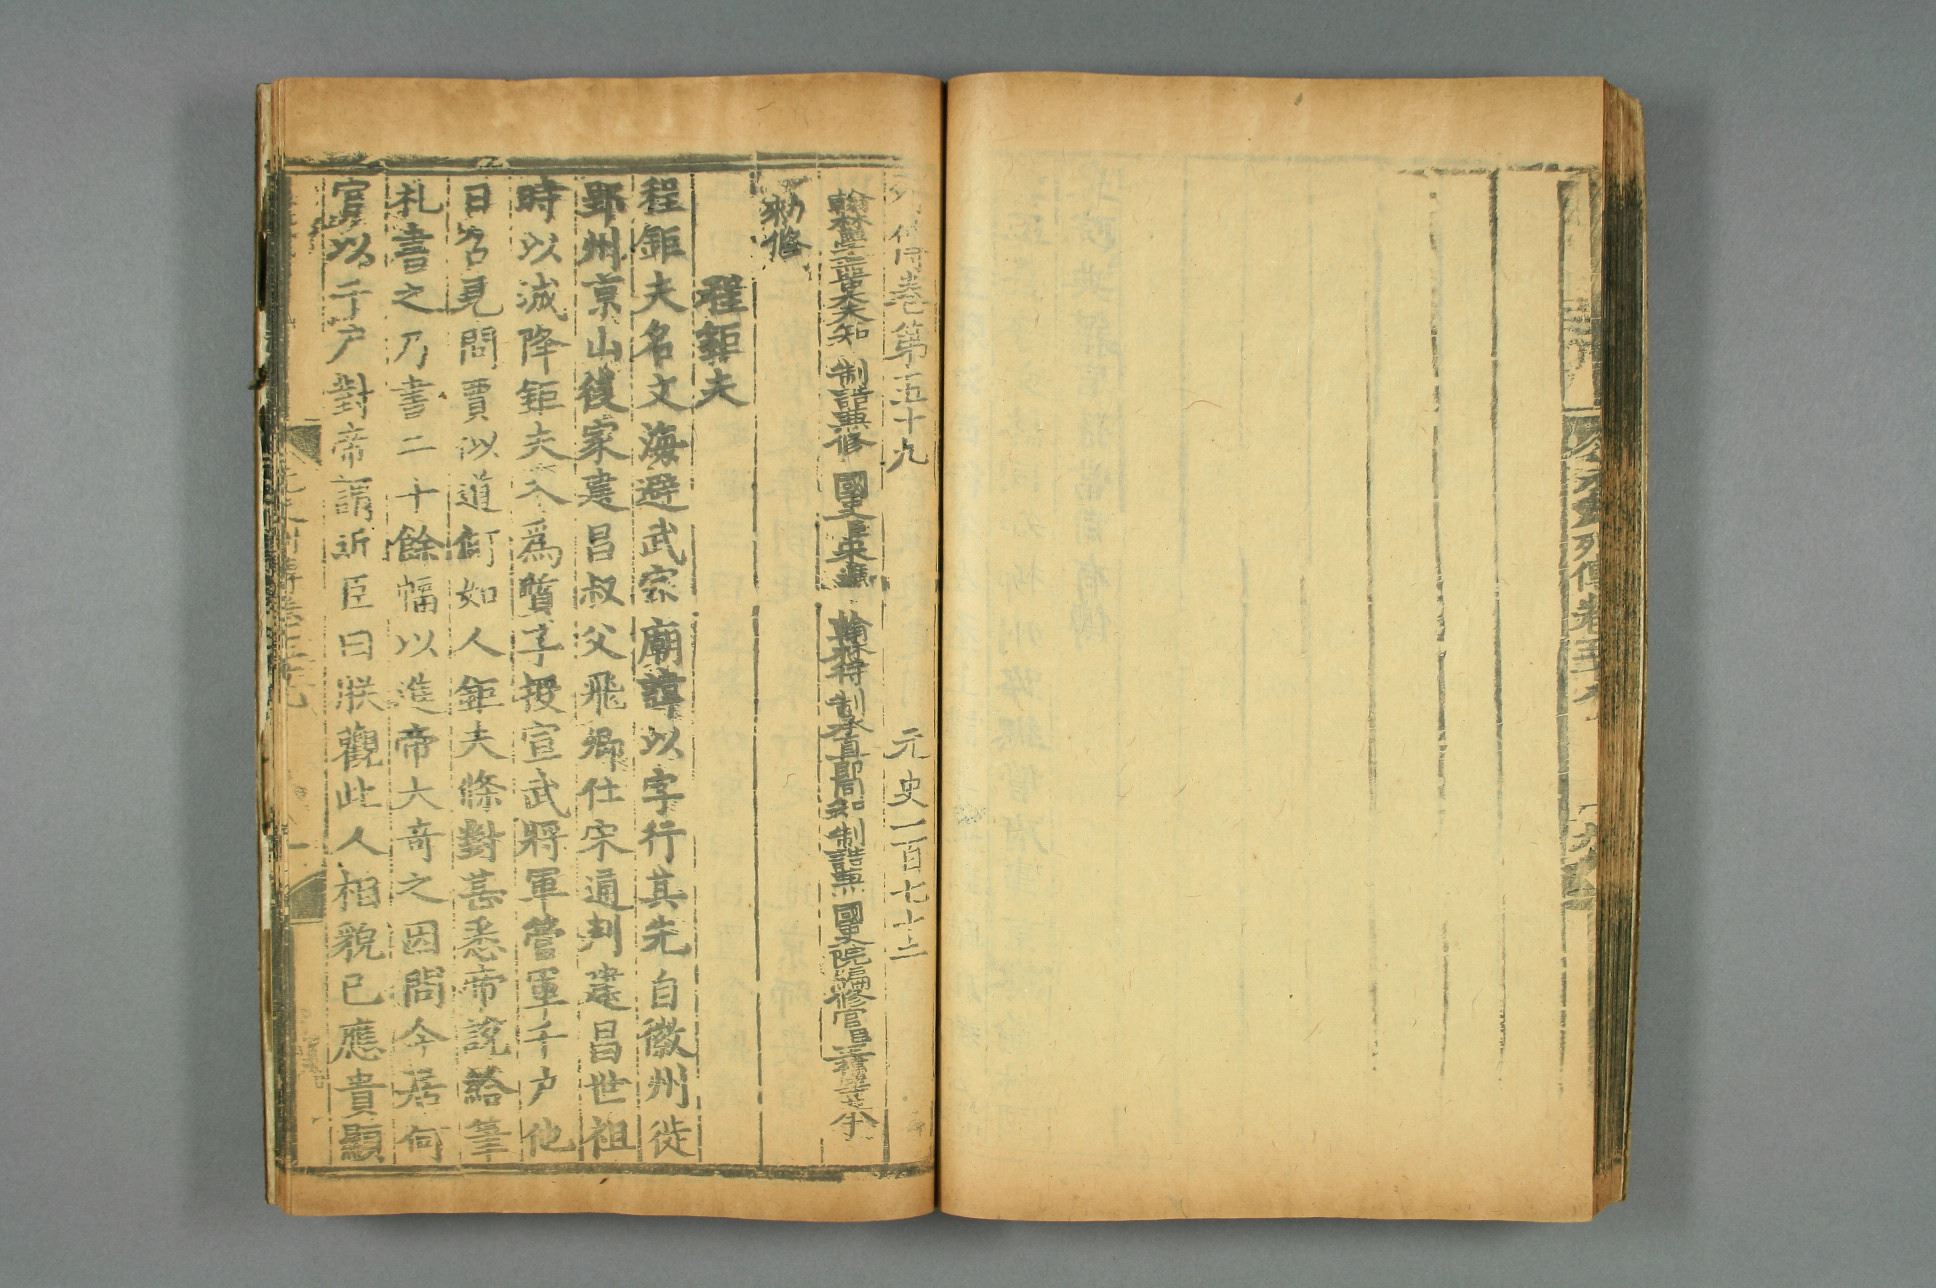 列傳卷第五十九 元史一百七十二
翰林學士亞中大夫知 制誥兼修 國史臣宋濂 翰林待制承直郎同知 制誥兼 國史院編修官臣王禕等奉
勑修
程鉅夫
程鉅夫名文海避武宗廟諱以字行其先自徽州徙
郢州京山後家建昌叔父飛卿仕宋通判建昌世祖
時以減降鉅夫入爲質子授宣武將軍管軍千户他
日召見問賈似道何如人鉅夫條對甚悉帝說給筆
札書之乃書二十餘幅以進帝大奇之因問今居何
官以千户對帝謂近臣曰朕觀此人相貌已應貴顯